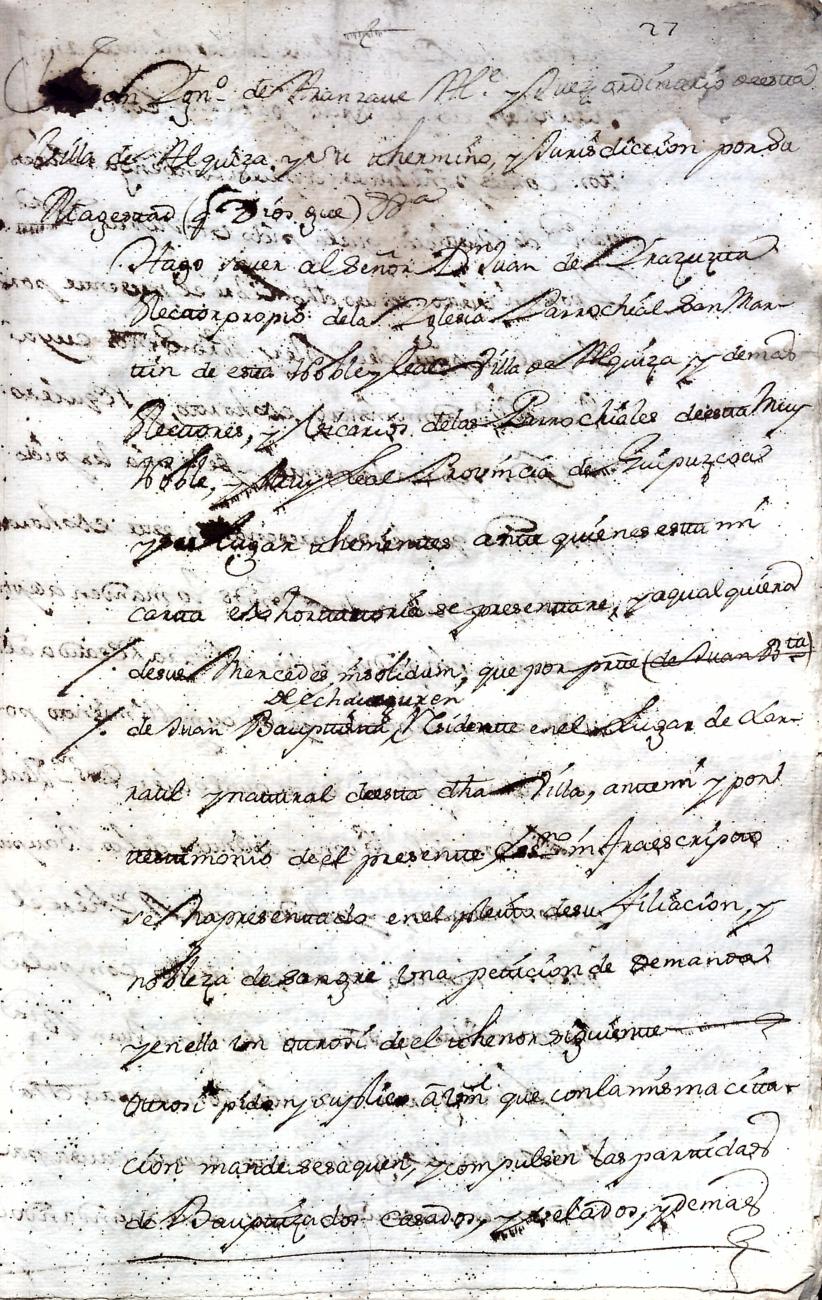 27
Ygn.º de Aranzave Al.e y Juez ordinario de esta
Villa de Alquiza y su thermino, y Jurisdiccion por su
Magestad (q Dios gue)
Hago saver al Señor Dn Juan de Yrazuzta
Rector propio de la Yglesia Parrochial San Mar-
tin de esta Noble y leal Villa de Alquiza, y demas
Rectores, y Vicarios delas Parrochiales de esta Muy
Noble, y Muy Leal Provincia de Guipuzcoa
y sus lugar thenientes ante quienes esta mi
carta exhortatoria se presentare, y aqualquiera
desus Mercedes insolidum, que por prte (de Juan Bta)
de Echaveguren
de Juan Bauptista, Residente enel Lugar de Lar-
raul y natural de esta dha Villa, antemi y por
testimonio de el presente Essno infraescripto
se ha presentado enel pleito desu filiacion, y
nobleza de sangre Una peticion de Demanda
yenella un otrosi de el thenor siguiente
Otrosi pido y suplico a Vm que conla misma cita-
cion mande sesaquen, y compulsen las partidas
de Bauptizados Casados, y velados, y demas